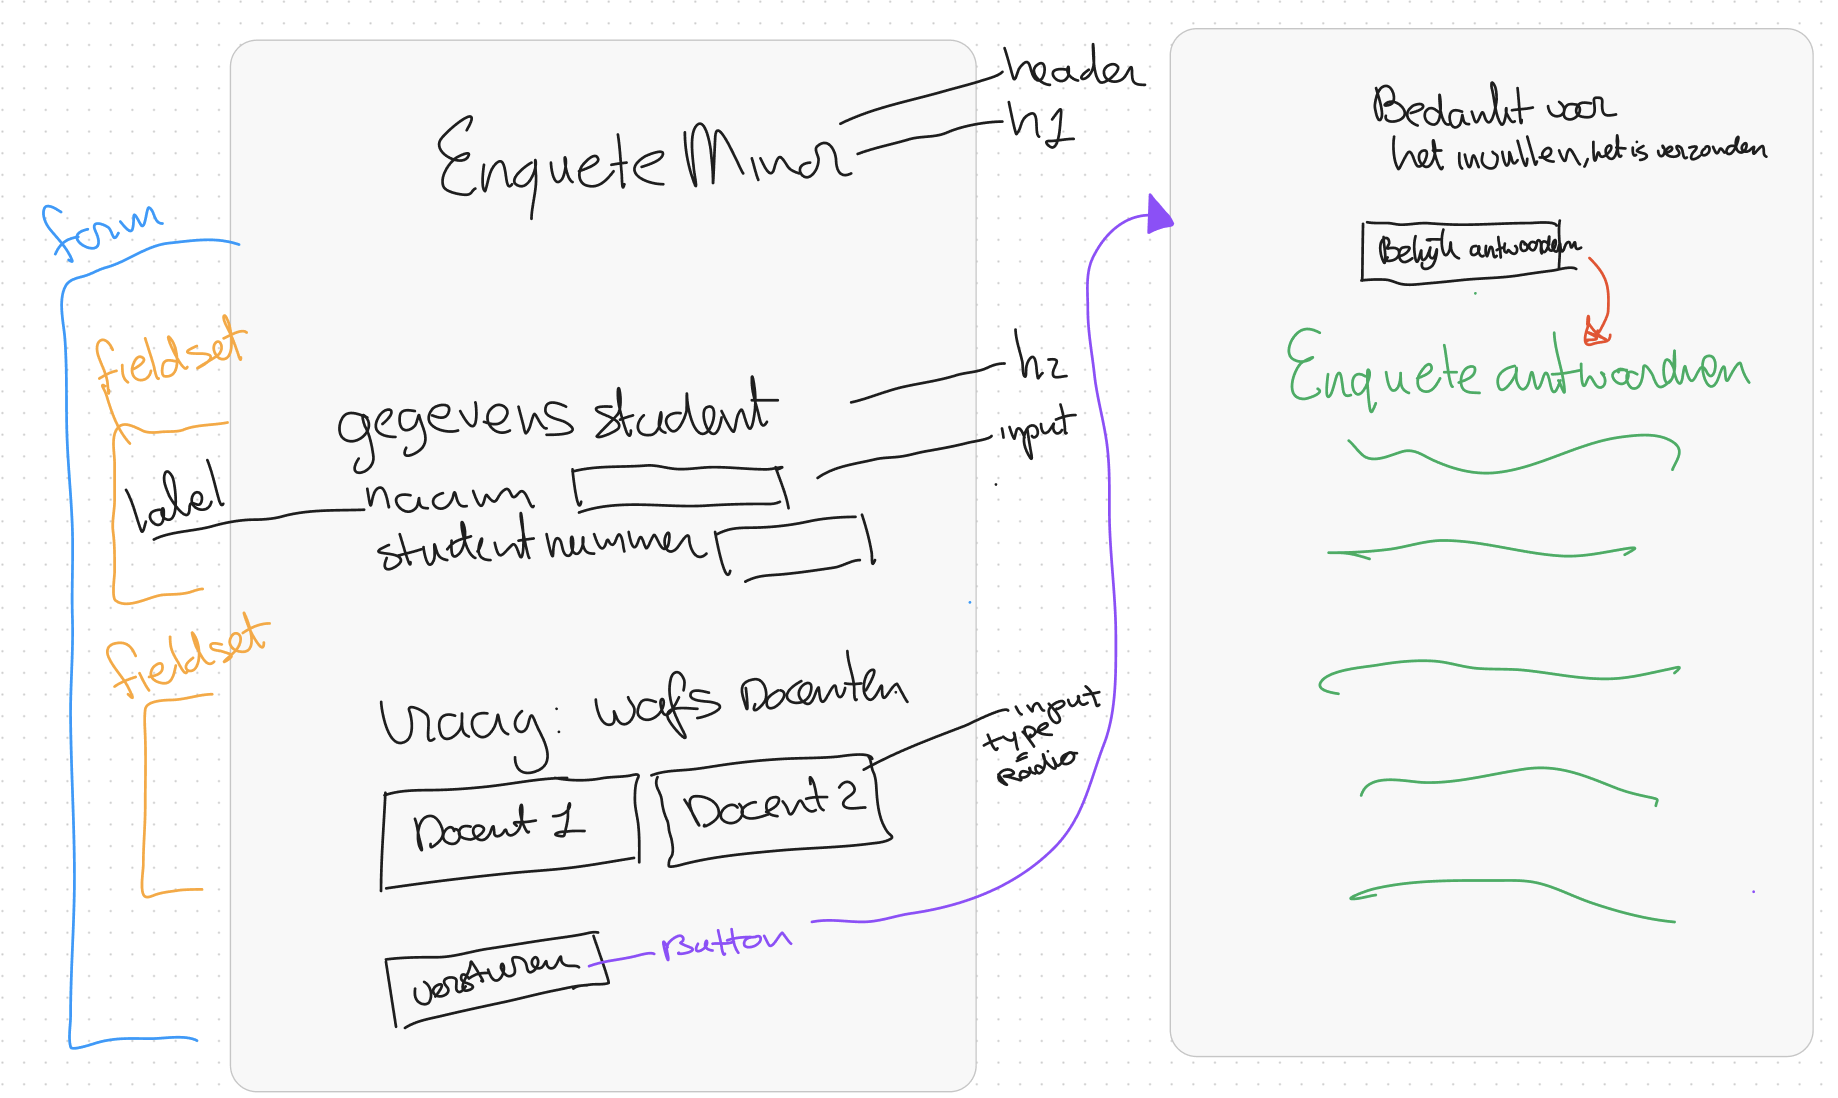 header
h1
Enquete Minor
form
fieldset
h2
gegevens student
input
label
naam
studentnummer
fieldset
Vraag: wafs Docenten
input
type
Radio
Docent 1
Docent 2
versturen
Button
Bedankt voor
het invullen, het is verzonden
Bekijk antwoorden
Enquete antwoorden